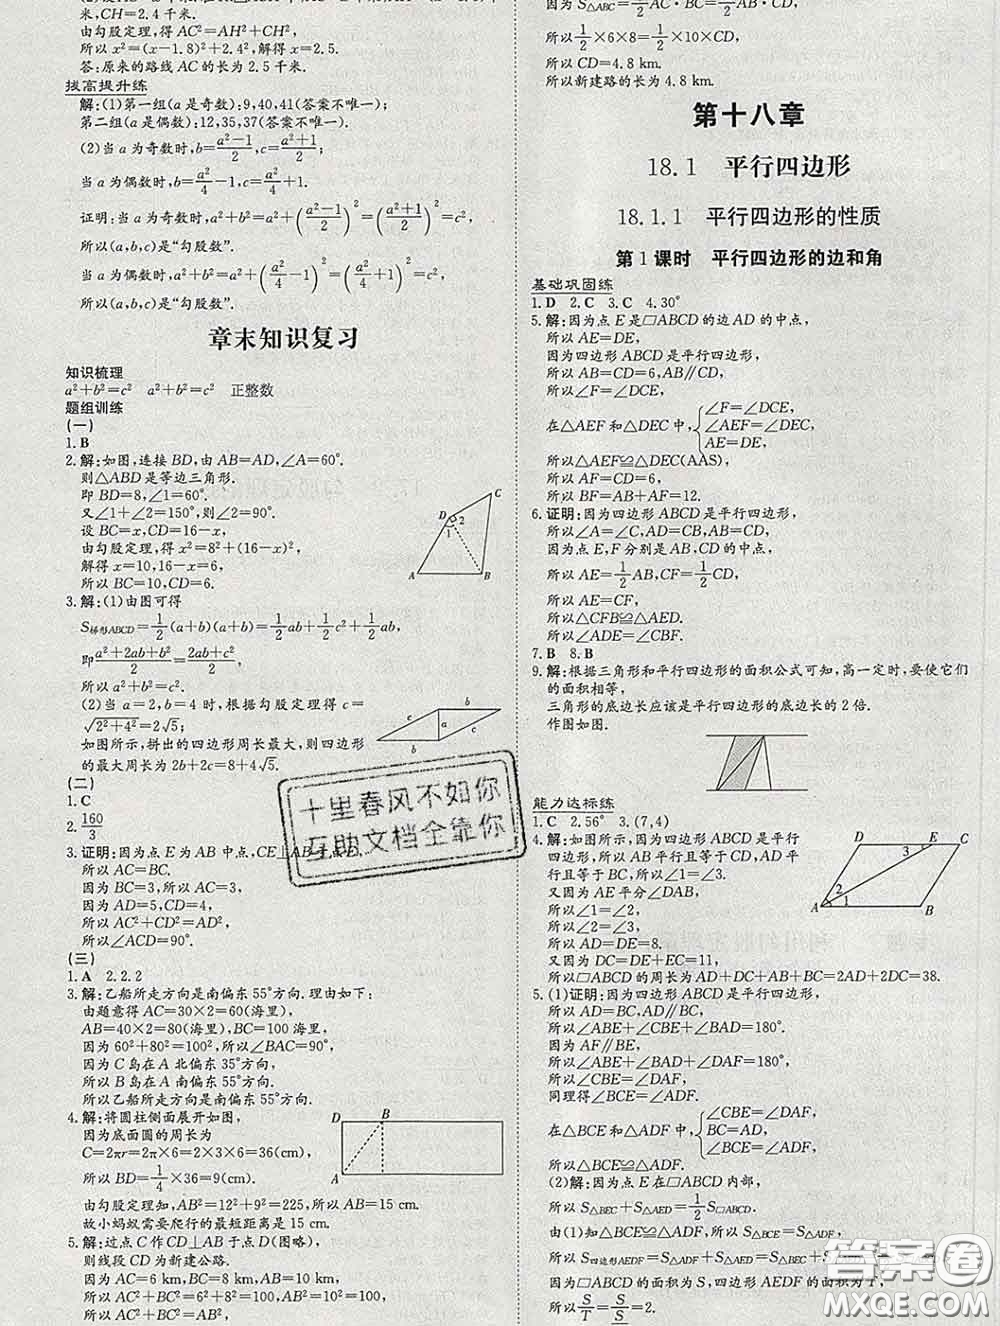 米,CH=2.4千米.
由勾股定理,得AC²=AH²+CH²,
所以x²=(x-1.8)²+2.4²,解得x=2.5.
答:原来的路线AC的长为2.5千米.
拔高提升练
解:(1)第一组(a是奇数):9,40,41(答案不唯一);
第二组(a是偶数):12,35,37(答案不唯一).
(2)当a为奇数时,b=(a²-1)/2,c=(a²+1)/2;
当a为偶数时,b=a²/4-1,c=a²/4+1.
证明:当a为奇数时,a²+b²=a²+((a²-1)/2)²=((a²+1)/2)²=c²,
所以(a,b,c)是“勾股数”.
当a为偶数时,a²+b²=a²+(a²/4-1)²=(a²/4+1)²=c²,
所以(a,b,c)是“勾股数”.
章末知识复习
知识梳理
a²+b²=c² a²+b²=c² 正整数
题组训练
(一)
1.B
2.解:如图,连接BD,由AB=AD,∠A=60°.
则△ABD是等边三角形.
即BD=8,∠1=60°.
又∠1+∠2=150°,则∠2=90°.
设BC=x,CD=16-x,
由勾股定理,得x²=8²+(16-x)²,
解得x=10,16-x=6,
所以BC=10,CD=6.
A B C D 1 2
3.解:(1)由图可得
S梯形ABCD=1/2(a+b)(a+b)=1/2ab+1/2c²+1/2ab,
即(a²+2ab+b²)/2=(2ab+c²)/2,
所以a²+b²=c².
(2)当a=2,b=4时,根据勾股定理得c=
√(2²+4²)=2√5;
如图所示,拼出的四边形周长最大,则四边形
的最大周长为2b+2c=8+4√5.
b c a c b
(二)
1.C
2.160/3
3.证明:因为点E为AB中点,CE⊥AB于点E,
所以AC=BC.
因为BC=3,所以AC=3.
因为AD=5,CD=4,
所以AC²+CD²=AD²,
所以∠ACD=90°.
(三)
1.A 2.2.2
3.解:乙船所走方向是南偏东55°方向.理由如下:
由题意得AC=30×2=60(海里),
AB=40×2=80(海里),BC=100海里.
因为60²+80²=100²,所以∠BAC=90°.
因为C岛在A北偏东35°方向,
所以B岛在A南偏东55°方向.
所以乙船所走方向是南偏东55°方向.
4.解:将圆柱侧面展开如图,
因为底面圆的周长为
C=2πr=2π×6=2×3×6=36(cm),
所以BD=1/4×36=9(cm),
由勾股定理知,AB²=12²+9²=225,所以AB=15 cm.
故小蚂蚁需要爬行的最短距离是15 cm.
D B A
5.解:过点C作CD⊥AB于点D(图略),
则线段CD为新建公路.
因为AC=6 km,BC=8 km,AB=10 km,
所以AC²+BC²=AB²,
因为S△ABC=1/2AC·BC=1/2AB·CD,
所以1/2×6×8=1/2×10×CD,
所以CD=4.8 km.
所以新建路的长为4.8 km.
第十八章
18.1 平行四边形
18.1.1 平行四边形的性质
第1课时 平行四边形的边和角
基础巩固练
1.D 2.C 3.C 4.30°
5.解:因为点E是□ABCD的边AD的中点,
所以AE=DE,
因为四边形ABCD是平行四边形,
所以AB=CD=6,AB∥CD,
所以∠F=∠DCE,
在△AEF和△DEC中,{∠F=∠DCE,
∠AEF=∠DEC,
AE=DE,
所以△AEF≌△DEC(AAS),
所以AF=CD=6,
所以BF=AB+AF=12.
6.证明:因为四边形ABCD是平行四边形,
所以∠A=∠C,AB=CD,AD=CB,
因为点E,F分别是AB,CD的中点,
所以AE=1/2AB,CF=1/2CD,
所以AE=CF,
所以△CFB≌△AED,
所以∠ADE=∠CBF.
7.B 8.B
9.解:根据三角形和平行四边形的面积公式可知,高一定时,要使它们
的面积相等,
三角形的底边长应该是平行四边形的底边长的2倍.
作图如图.
能力达标练
1.C 2.56° 3.(7,4)
4.解:如图所示,因为四边形ABCD是平行
四边形,所以AB平行且等于CD,AD平
行且等于BC,所以∠1=∠3.
又因为AE平分∠DAB,
所以∠1=∠2,
所以∠2=∠3,
所以AD=DE=8.
因为CD=DE+EC=11,
所以□ABCD的周长为AD+DC+AB+BC=2AD+2DC=38.
D E C 3 2 1 A B
5.(1)证明:因为四边形ABCD是平行四边形,
所以AD=BC,AD∥BC,
所以∠ABE+∠CBE+∠BAD=180°.
因为AF∥BE,
所以∠ABE+∠BAD+∠DAF=180°,
所以∠CBE=∠DAF,
同理得∠BCE=∠ADF.
在△BCE和△ADF中,{∠CBE=∠DAF,
BC=AD,
∠BCE=∠ADF,
所以△BCE≌△ADF.
(2)解:因为点E在□ABCD内部,
所以S△BEC+S△AED=1/2S□ABCD,
由(1)知△BCE≌△ADF,所以S△BCE=S△ADF,
所以S四边形AEDF=S△ADF+S△AED=S△BEC+S△AED=
因为□ABCD的面积为S,四边形AEDF的面积为T,
所以S/T=2.
十里春风不如你
互助文档全靠你
答案圈
MXQE.COM